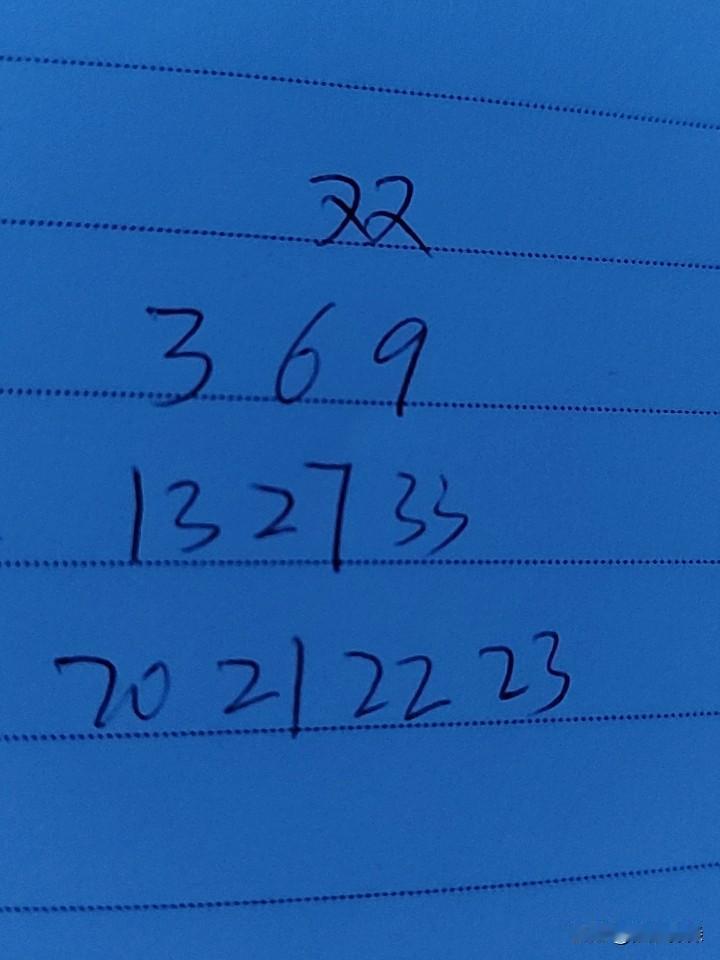 双
3 6 9
13 27 33
20 21 22 23